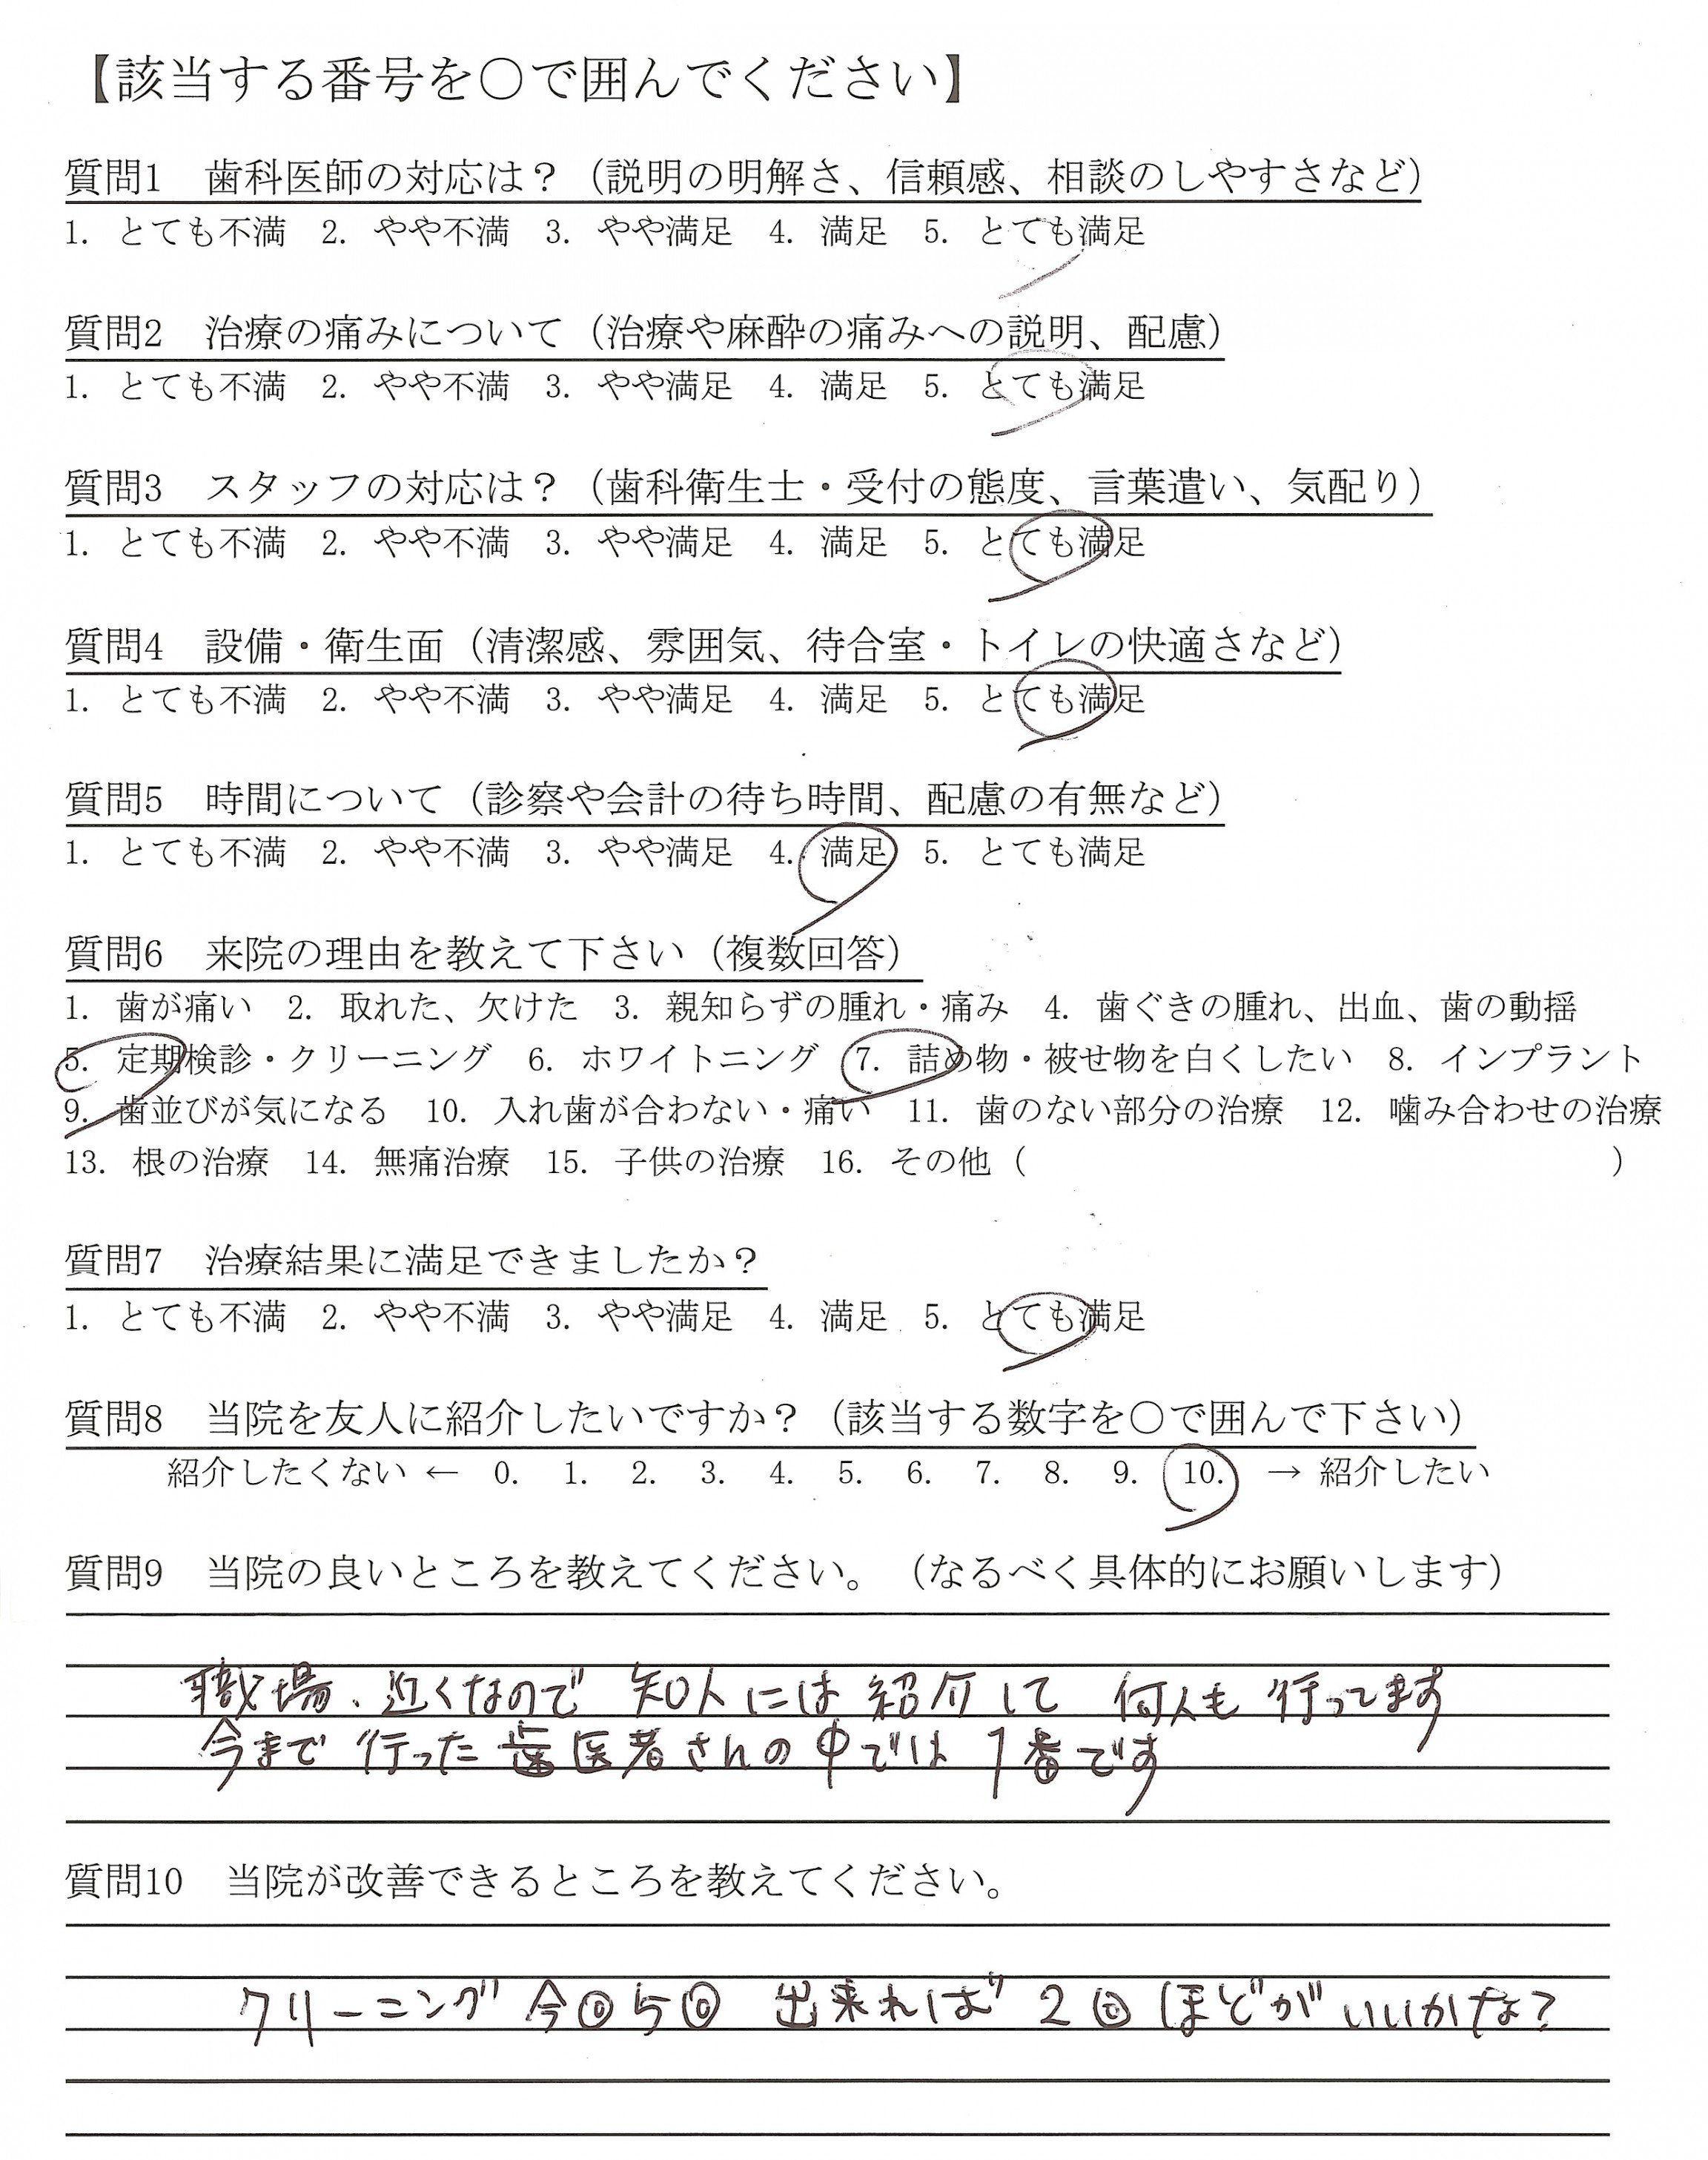 【該当する番号を○で囲んでください】
質問1　歯科医師の対応は？（説明の明解さ、信頼感、相談のしやすさなど）
1. とても不満　2. やや不満　3. やや満足　4. 満足　5. とても満足
質問2　治療の痛みについて（治療や麻酔の痛みへの説明、配慮）
1. とても不満　2. やや不満　3. やや満足　4. 満足　5. とても満足
質問3　スタッフの対応は？（歯科衛生士・受付の態度、言葉遣い、気配り）
1. とても不満　2. やや不満　3. やや満足　4. 満足　5. とても満足
質問4　設備・衛生面（清潔感、雰囲気、待合室・トイレの快適さなど）
1. とても不満　2. やや不満　3. やや満足　4. 満足　5. とても満足
質問5　時間について（診察や会計の待ち時間、配慮の有無など）
1. とても不満　2. やや不満　3. やや満足　4. 満足　5. とても満足
質問6　来院の理由を教えて下さい（複数回答）
1. 歯が痛い　2. 取れた、欠けた　3. 親知らずの腫れ・痛み　4. 歯ぐきの腫れ、出血、歯の動揺
5. 定期検診・クリーニング　6. ホワイトニング　7. 詰め物・被せ物を白くしたい　8. インプラント
9. 歯並びが気になる　10. 入れ歯が合わない・痛い　11. 歯のない部分の治療　12. 噛み合わせの治療
13. 根の治療　14. 無痛治療　15. 子供の治療　16. その他（　　　　　　　　　　　　　　　　　）
質問7　治療結果に満足できましたか？
1. とても不満　2. やや不満　3. やや満足　4. 満足　5. とても満足
質問8　当院を友人に紹介したいですか？（該当する数字を○で囲んで下さい）
紹介したくない ← 0. 1. 2. 3. 4. 5. 6. 7. 8. 9. 10. → 紹介したい
質問9　当院の良いところを教えてください。（なるべく具体的にお願いします）
職場、近くなので 知人には 紹介して 何人も 行ってます
今まで 行った 歯医者さんの 中では 1番です
質問10　当院が改善できるところを教えてください。
クリーニング 今回5回 出来れば 2回ほどが いいかな？